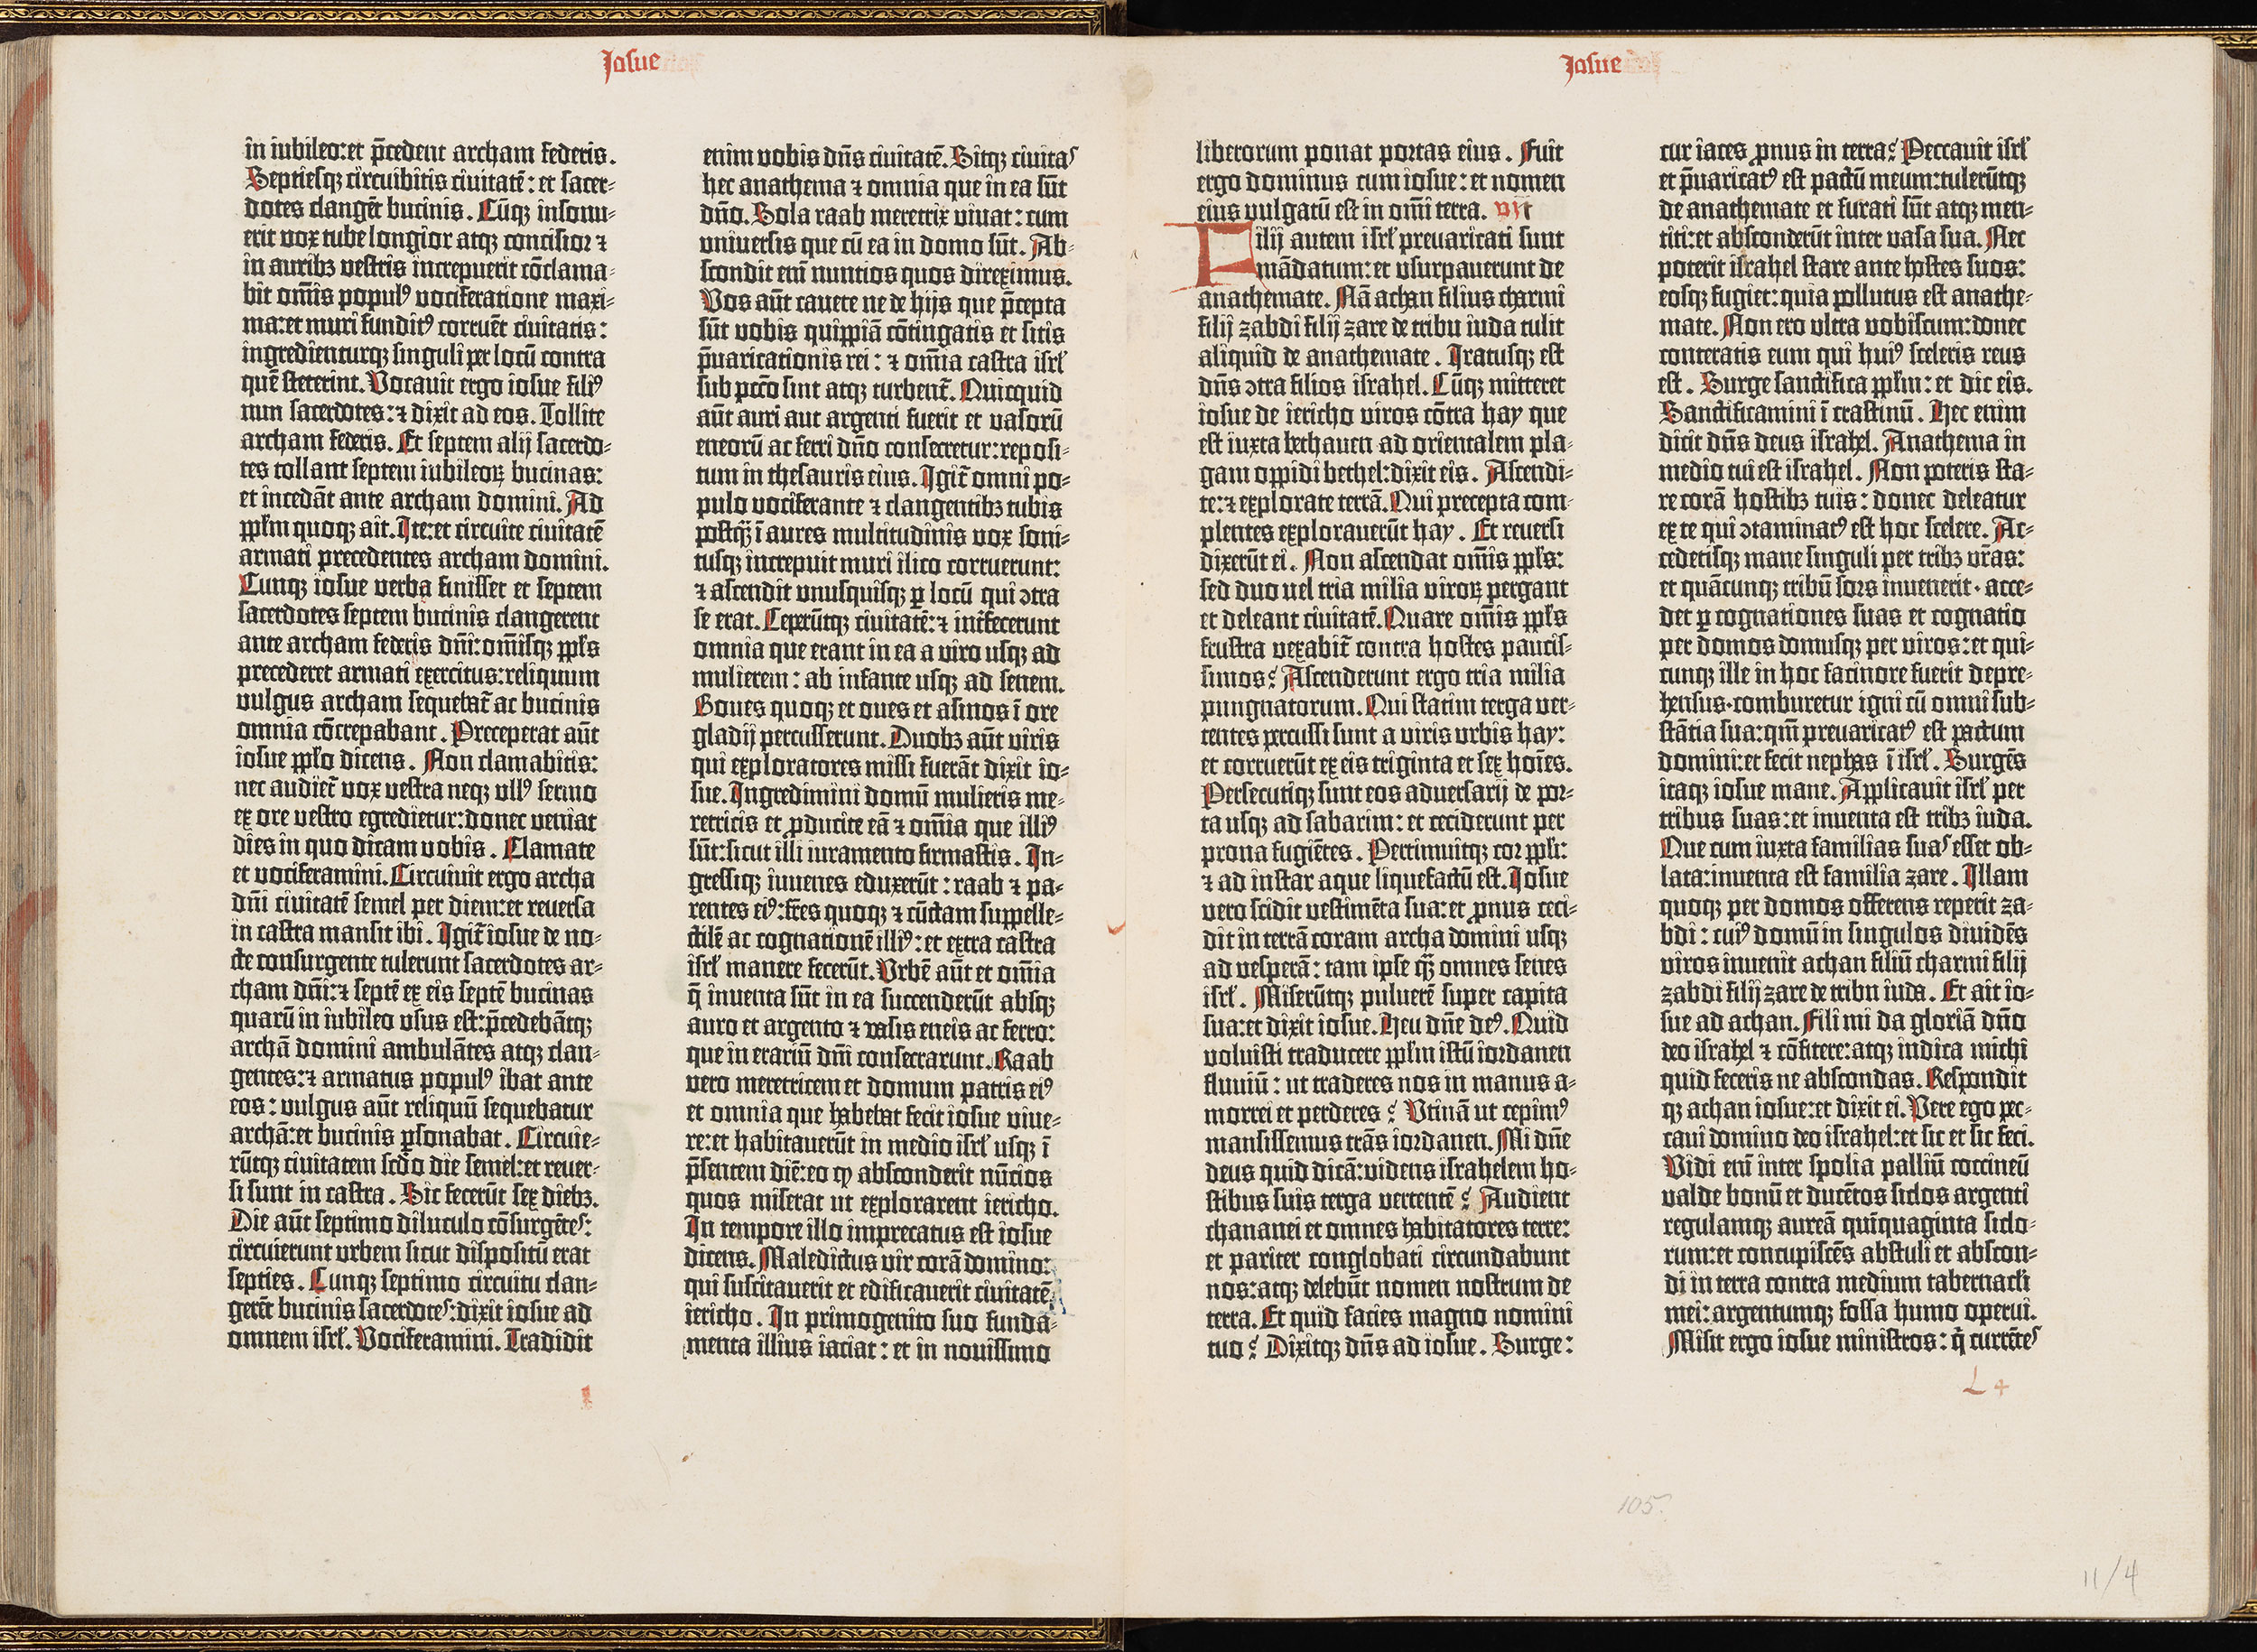 Josue
in iubileo:et p̄cedent archam federis.
Septiesq; circuibitis ciuitatē: et sacer-
dotes clangēt bucinis. Cūq; insonu-
erit vox tube longior atq; concisior ⁊
in auribꝫ vestris increpuerit cōclama-
bit om̄is populꝰ vociferatione maxi-
ma:et muri funditꝰ corruēt ciuitatis:
ingredienturq; singuli per locū contra
quē steterint. Vocauit ergo iosue filiꝰ
nun sacerdotes:⁊ dixit ad eos. Tollite
archam federis. Et septem alij sacerdo-
tes tollant septem iubileoꝝ bucinas:
et incedāt ante archam domini. Ad
pp̄lm quoq; ait. Ite:et circuite ciuitatē
armati precedentes archam domini.
Cunq; iosue verba finisset et septem
sacerdotes septem bucinis clangerent
ante archam federis dn̄i:om̄isq; pp̄ls
precederet armati exercitus:reliquum
vulgus archam sequebat᷑ ac bucinis
omnia cōcrepabant. Preceperat aūt
iosue pp̄lo dicens. Non clamabitis:
nec audiet᷑ vox vestra neq; vllꝰ sermo
ex ore vestro egredietur:donec veniat
dies in quo dicam vobis. Clamate
et vociferamini. Circuiuit ergo archa
dn̄i ciuitatē semel per diem:et reuersa
in castra mansit ibi. Igit᷑ iosue de no-
cte consurgente tulerunt sacerdotes ar-
cham dn̄i:⁊ septē ex eis septē bucinas
quarū in iubileo vsus est:p̄cedebātq;
archā domini ambulātes atq; clan-
gentes:⁊ armatus populꝰ ibat ante
eos: vulgus aūt reliquū sequebatur
archā:et bucinis ꝑsonabat. Circuie-
rūtq; ciuitatem scd̄o die semel:et reuer-
si sunt in castra. Sic fecerūt sex diebꝫ.
Die aūt septimo diluculo cōsurgētes:
circuierunt vrbem sicut dispositū erat
septies. Cunq; septimo circuitu clan-
gerēt bucinis sacerdotes:dixit iosue ad
omnem isrl̄. Vociferamini. Tradidit
enim vobis dn̄s ciuitatē. Sitq; ciuitas
hec anathema ⁊ omnia que in ea sūt
dn̄o. Sola raab meretrix viuat: cum
vniuersis que cū ea in domo sūt. Ab-
scondit eni᷑ nuntios quos direximus.
Vos aūt cauete ne de hijs que p̄cepta
sūt vobis quippiā cōtingatis et sitis
p̄uaricationis rei: ⁊ om̄ia castra isrl̄
sub pccō sint atq; turbent᷑. Quicquid
aūt auri aut argenti fuerit et vasorū
eneorū ac ferri dn̄o consecretur:reposi-
tum in thesauris eius. Igit᷑ omni po-
pulo vociferante ⁊ clangentibꝫ tubis
postq̄ꝫ ī aures multitudinis vox soni-
tusq; increpuit muri ilico corruerunt:
⁊ ascendit vnusquisq; ꝑ locū qui ꝯtra
se erat. Ceperūtq; ciuitatē:⁊ int᷑fecerunt
omnia que erant in ea a viro usq; ad
mulierem: ab infante usq; ad senem.
Boues quoq; et oues et asinos ī ore
gladij percusserunt. Duobꝫ aūt viris
qui exploratores missi fuerāt dixit io-
sue. Ingredimini domū mulieris me-
retricis et ꝓducite eā ⁊ om̄ia que illiꝰ
sūt:sicut illi iuramento firmastis. In-
gressiq; iuuenes eduxerūt: raab ⁊ pa-
rentes eiꝰ:fr̄es quoq; ⁊ cūctam suppelle-
ctilē ac cognationē illiꝰ: et extra castra
isrl̄ manere fecerūt. Vrbē aūt et om̄ia
q̄ inuenta sūt in ea succenderūt absq;
auro et argento ⁊ vasis eneis ac ferro:
que in erariū dn̄i consecrarunt. Raab
vero meretricem et domum patris eiꝰ
et omnia que habebat fecit iosue viue-
re:et habitauerūt in medio isrl̄ usq; ī
p̄sentem diē:eo ꝙ absconderit nūcios
quos miserat ut explorarent iericho.
In tempore illo imprecatus est iosue
dicens. Maledictus vir corā domino:
qui suscitauerit et edificauerit ciuitatē
iericho. In primogenito suo funda-
menta illius iaciat: et in nouissimo
Josue
liberorum ponat portas eius. Fuit
ergo dominus cum iosue: et nomen
eius vulgatū est in om̄i terra. VII
Filij autem isrl̄ preuaricati sunt
mādatum:et vsurpauerunt de
anathemate. Nā achan filius charmi
filij zabdi filij zare de tribu iuda tulit
aliquid de anathemate. Iratusq; est
dn̄s ꝯtra filios israhel. Cūq; mitteret
iosue de iericho viros cōtra hay que
est iuxta bethauen ad orientalem pla-
gam oppidi bethel:dixit eis. Ascendi-
te:⁊ explorate terrā. Qui precepta com-
plentes explorauerūt hay. Et reuersi
dixerūt ei. Non ascendat om̄is pp̄ls:
sed duo vel tria milia viroꝝ pergant
et deleant ciuitatē. Quare om̄is pp̄ls
frustra vexabit᷑ contra hostes paucis-
simos? Ascenderunt ergo tria milia
pungnatorum. Qui statim terga ver-
tentes percussi sunt a viris vrbis hay:
et corruerūt ex eis triginta et sex hoīes.
Persecutiq; sunt eos aduersarij de por-
ta usq; ad sabarim: et ceciderunt per
prona fugiētes. Pertimuitq; cor pp̄li:
⁊ ad instar aque liquefactū est. Iosue
vero scidit vestimēta sua:et ꝓnus ceci-
dit in terrā coram archa domini usq;
ad vesperā: tam ipse q̄ꝫ omnes senes
isrl̄. Miserūtq; puluerē super capita
sua:et dixit iosue. Heu dn̄e deꝰ. Quid
voluisti traducere pp̄lm istū iordanen
fluuiū: ut traderes nos in manus a-
morrei et perderes? Vtinā ut cepimꝰ
mansissemus trās iordanen. Mi dn̄e
deus quid dicā:videns israhelem ho-
stibus suis terga vertentē? Audient
chananei et omnes habitatores terre:
et pariter conglobati circundabunt
nos:atq; delebūt nomen nostrum de
terra. Et quid facies magno nomini
tuo? Dixitq; dn̄s ad iosue. Surge:
cur iaces ꝓnus in terra? Peccauit isrl̄
et p̄uaricatꝰ est pactū meum:tulerūtq;
de anathemate et furati sūt atq; men-
titi:et absconderūt inter vasa sua. Nec
poterit israhel stare ante hostes suos:
eosq; fugiet: quia pollutus est anathe-
mate. Non ero vltra vobiscum:donec
conteratis eum qui huiꝰ sceleris reus
est. Surge sanctifica pp̄lm: et dic eis.
Sanctificamini ī crastinū. Hec enim
dicit dn̄s deus israhel. Anathema in
medio tui est israhel. Non poteris sta-
re corā hostibꝫ tuis: donec deleatur
ex te qui ꝯtaminatꝰ est hoc scelere. Ac-
cedetisq; mane singuli per tribꝫ vr̄as:
et quācunq; tribū sors inuenerit· acce-
det ꝑ cognationes suas et cognatio
per domos domusq; per viros: et qui-
cunq; ille in hoc facinore fuerit depre-
hensus·comburetur igni cū omni sub-
stātia sua:qm̄ preuaricatꝰ est pactum
domini:et fecit nephas ī isrl̄. Surgēs
itaq; iosue mane. Applicauit isrl̄ per
tribus suas:et inuenta est tribꝫ iuda.
Que cum iuxta familias suas esset ob-
lata:inuenta est familia zare. Illam
quoq; per domos offerens reperit za-
bdi: cuiꝰ domū in singulos diuidēs
viros inuenit achan filiū charmi filij
zabdi filij zare de tribu iuda. Et ait io-
sue ad achan. Fili mi da gloriā dn̄o
deo israhel ⁊ cōfitere:atq; indica michi
quid feceris ne abscondas. Respondit
q; achan iosue:et dixit ei. Vere ego pec-
caui domino deo israhel:et sic et sic feci.
Vidi eni᷑ inter spolia palliū coccineū
valde bonū et ducētos siclos argenti
regulamq; aureā quīquaginta siclo-
rum:et concupiscēs abstuli et abscon-
di in terra contra medium tabernacli
mei: argentumq; fossa humo operui.
Misit ergo iosue ministros: q̄ currētes
L 4
105.
11/4